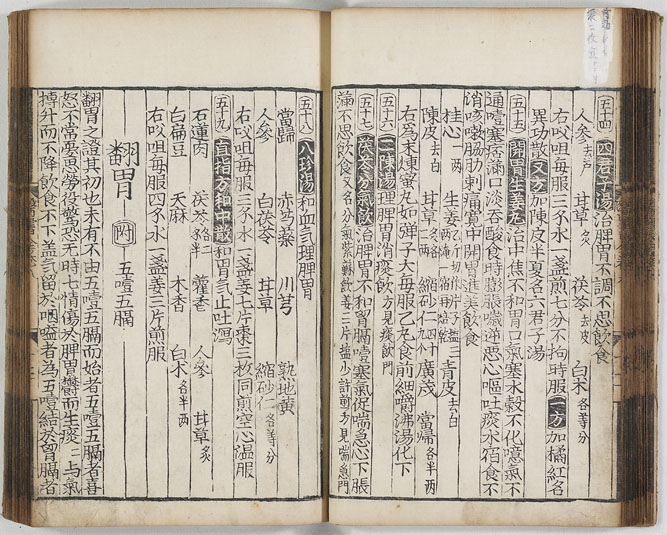 (五十四)四君子湯治脾胃不調不思飲食
人參去芦 甘草炙 茯苓去皮 白朮各等分
右㕮咀每服三禾水一盞煎七分不拘時服一方加橘紅名
異功散又方加陳皮半夏名六君子湯
(五十五)開胃生姜丸治中焦不和胃口氣塞水穀不化噫氣不
通噎塞痞滿口淡吞酸食時膨脹噦逆惡心嘔吐痰水宿食不
消咳嗽脇肋刺痛寛中開胃進美飲食
桂心一兩 生姜 切作片子塩三兩 一宿 青皮去白
陳皮去白 甘草炙 縮砂仁四十九个 廣茂 當帰各半兩
右爲末煉蜜丸如彈子大每服乙丸食前細嚼沸湯化下
(五十六)二陳湯理脾胃消痰飲方見痰飲門
(五十七)茯苓分氣飲治脾胃不和胷膈噎塞氣促喘急心下脹
滿不思飲食又名分氣紫蘇飲姜三片塩少許煎方見喘急門
(五十八)八珍湯和血氣理脾胃
當歸 赤芍藥 川芎 熟地黃
人參 白茯苓 甘草 縮砂仁各等分
右㕮咀每服三禾水一盞姜七片棗三枚同煎空心温服
(五十九)直指方和中散和胃氣止吐瀉
石蓮肉 茯苓 藿香 人參 甘草炙
白扁豆 天麻 木香 白朮各半兩
右㕮咀每服四禾水一盞姜三片煎服
翻胃 附 五噎五膈
翻胃之證其初也未有不由五噎五膈而始者五噎五膈者喜
怒不常憂思勞役驚恐无時七情傷於脾胃鬱而生痰二与氣
摶升而不降飲食不下盖氣留於咽嗌者為五噎結於胷膈者